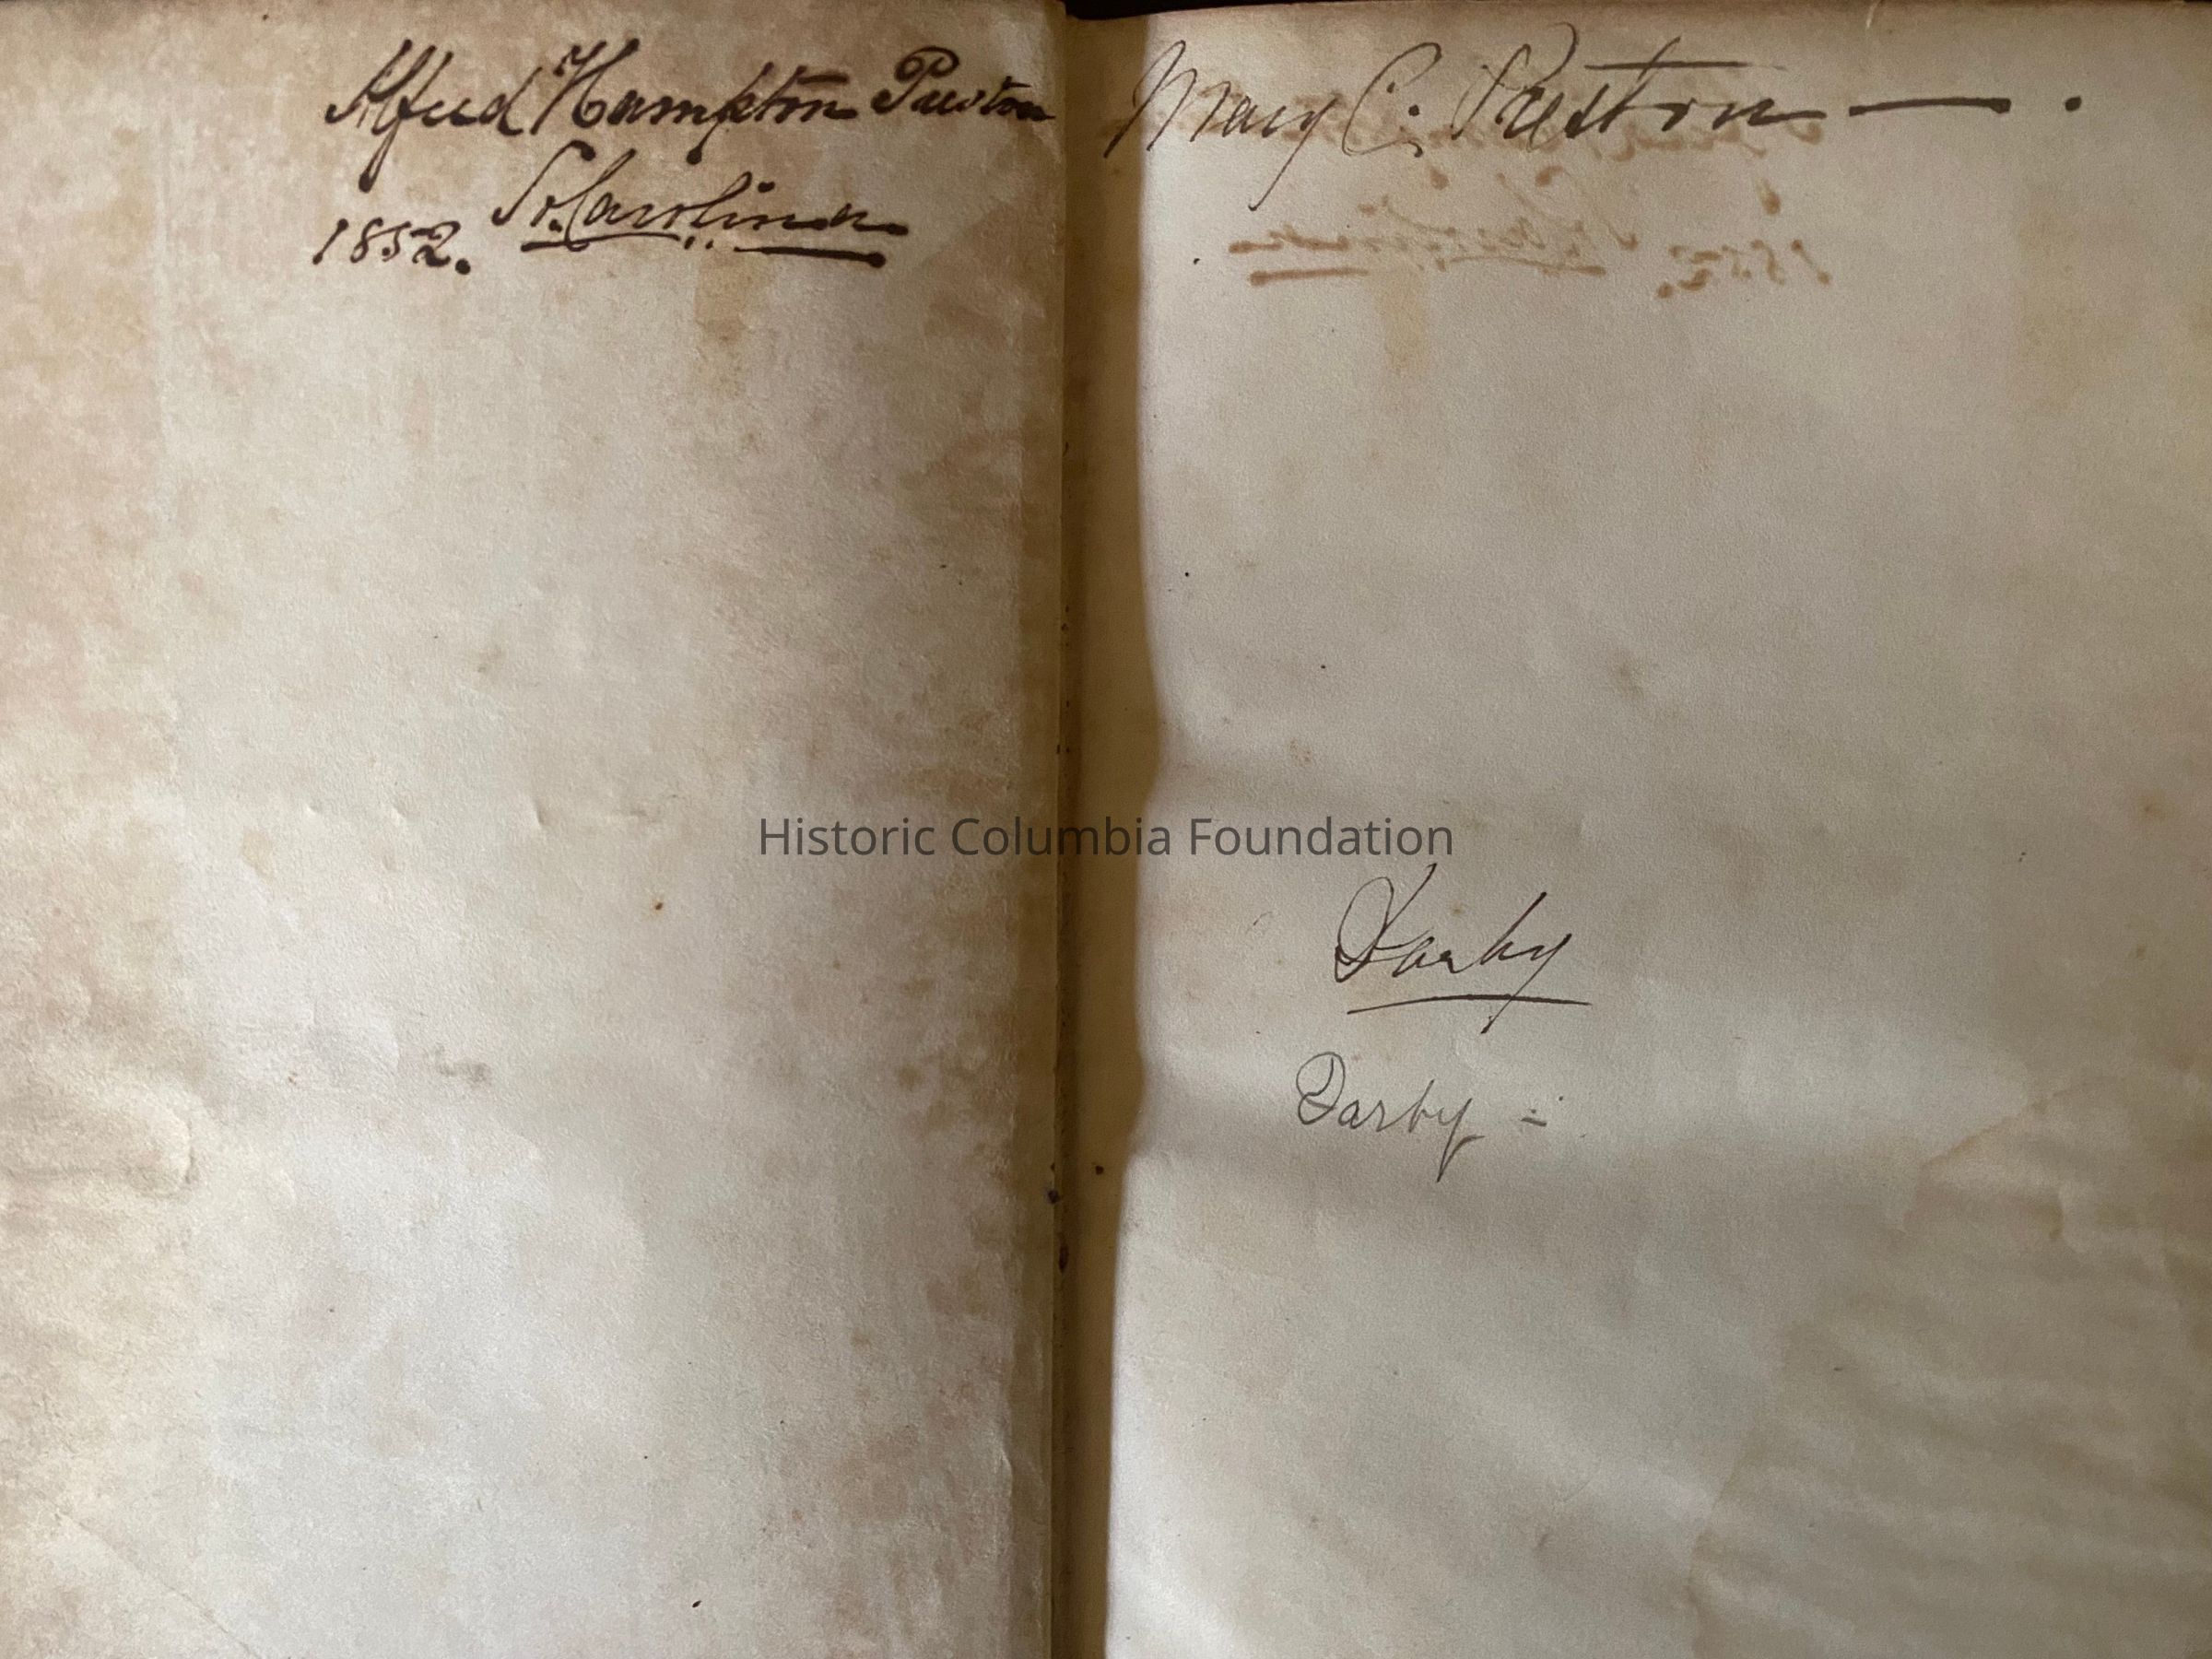 Alfred Hampton Preston
So. Carolina
1852.
Mary C. Preston — .
Historic Columbia Foundation
Darby
Darby =